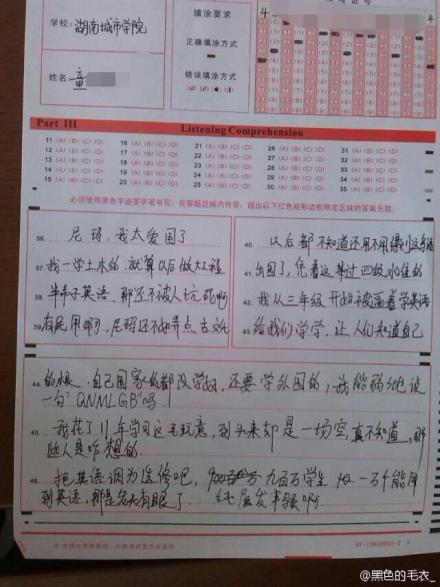 学校: 湖南城市学院
姓名: 童
填涂要求
正确填涂方式
错误填涂方式
Part III Listening Comprehension
11 (A) (B) (C) (D) 16 (A) (B) (C) (D) 21 (A) (B) (C) (D) 26 (A) (B) (C) (D) 31 (A) (B) (C) (D)
12 (A) (B) (C) (D) 17 (A) (B) (C) (D) 22 (A) (B) (C) (D) 27 (A) (B) (C) (D) 32 (A) (B) (C) (D)
13 (A) (B) (C) (D) 18 (A) (B) (C) (D) 23 (A) (B) (C) (D) 28 (A) (B) (C) (D) 33 (A) (B) (C) (D)
14 (A) (B) (C) (D) 19 (A) (B) (C) (D) 24 (A) (B) (C) (D) 29 (A) (B) (C) (D) 34 (A) (B) (C) (D)
15 (A) (B) (C) (D) 20 (A) (B) (C) (D) 25 (A) (B) (C) (D) 30 (A) (B) (C) (D) 35 (A) (B) (C) (D)
必须使用黑色字迹签字笔书写,在答题区域内作答,超出以下红色矩形边框限定区域的答案无效。
36. 尼玛,我太爱国了
37. 我一学土木的,就算以后做大工程
38. 半吊子英语,那还不被人坑死啊
39. 有屁用啊,尼玛还不如弄点古文化
40. 以后都不知道还用不用得到这鸟语
41. 出国了,凭着这半过四级水准的
42. 我从三年级开始被逼着学英语
43. 给我们学学,让人们知道自己
44. 的根,自己国家的都没学好,还要学外国的,我能弱弱地说
一句:"QNMLGB"吗!
45. 我花了11年学习这毛玩意,到头来却是一场空,真不知道,那
些人是咋想的
46. 把英语调为选修吧,九百万学生 没一万个能用
到英语,那是 纯属发牢骚啊
@黑色的毛衣